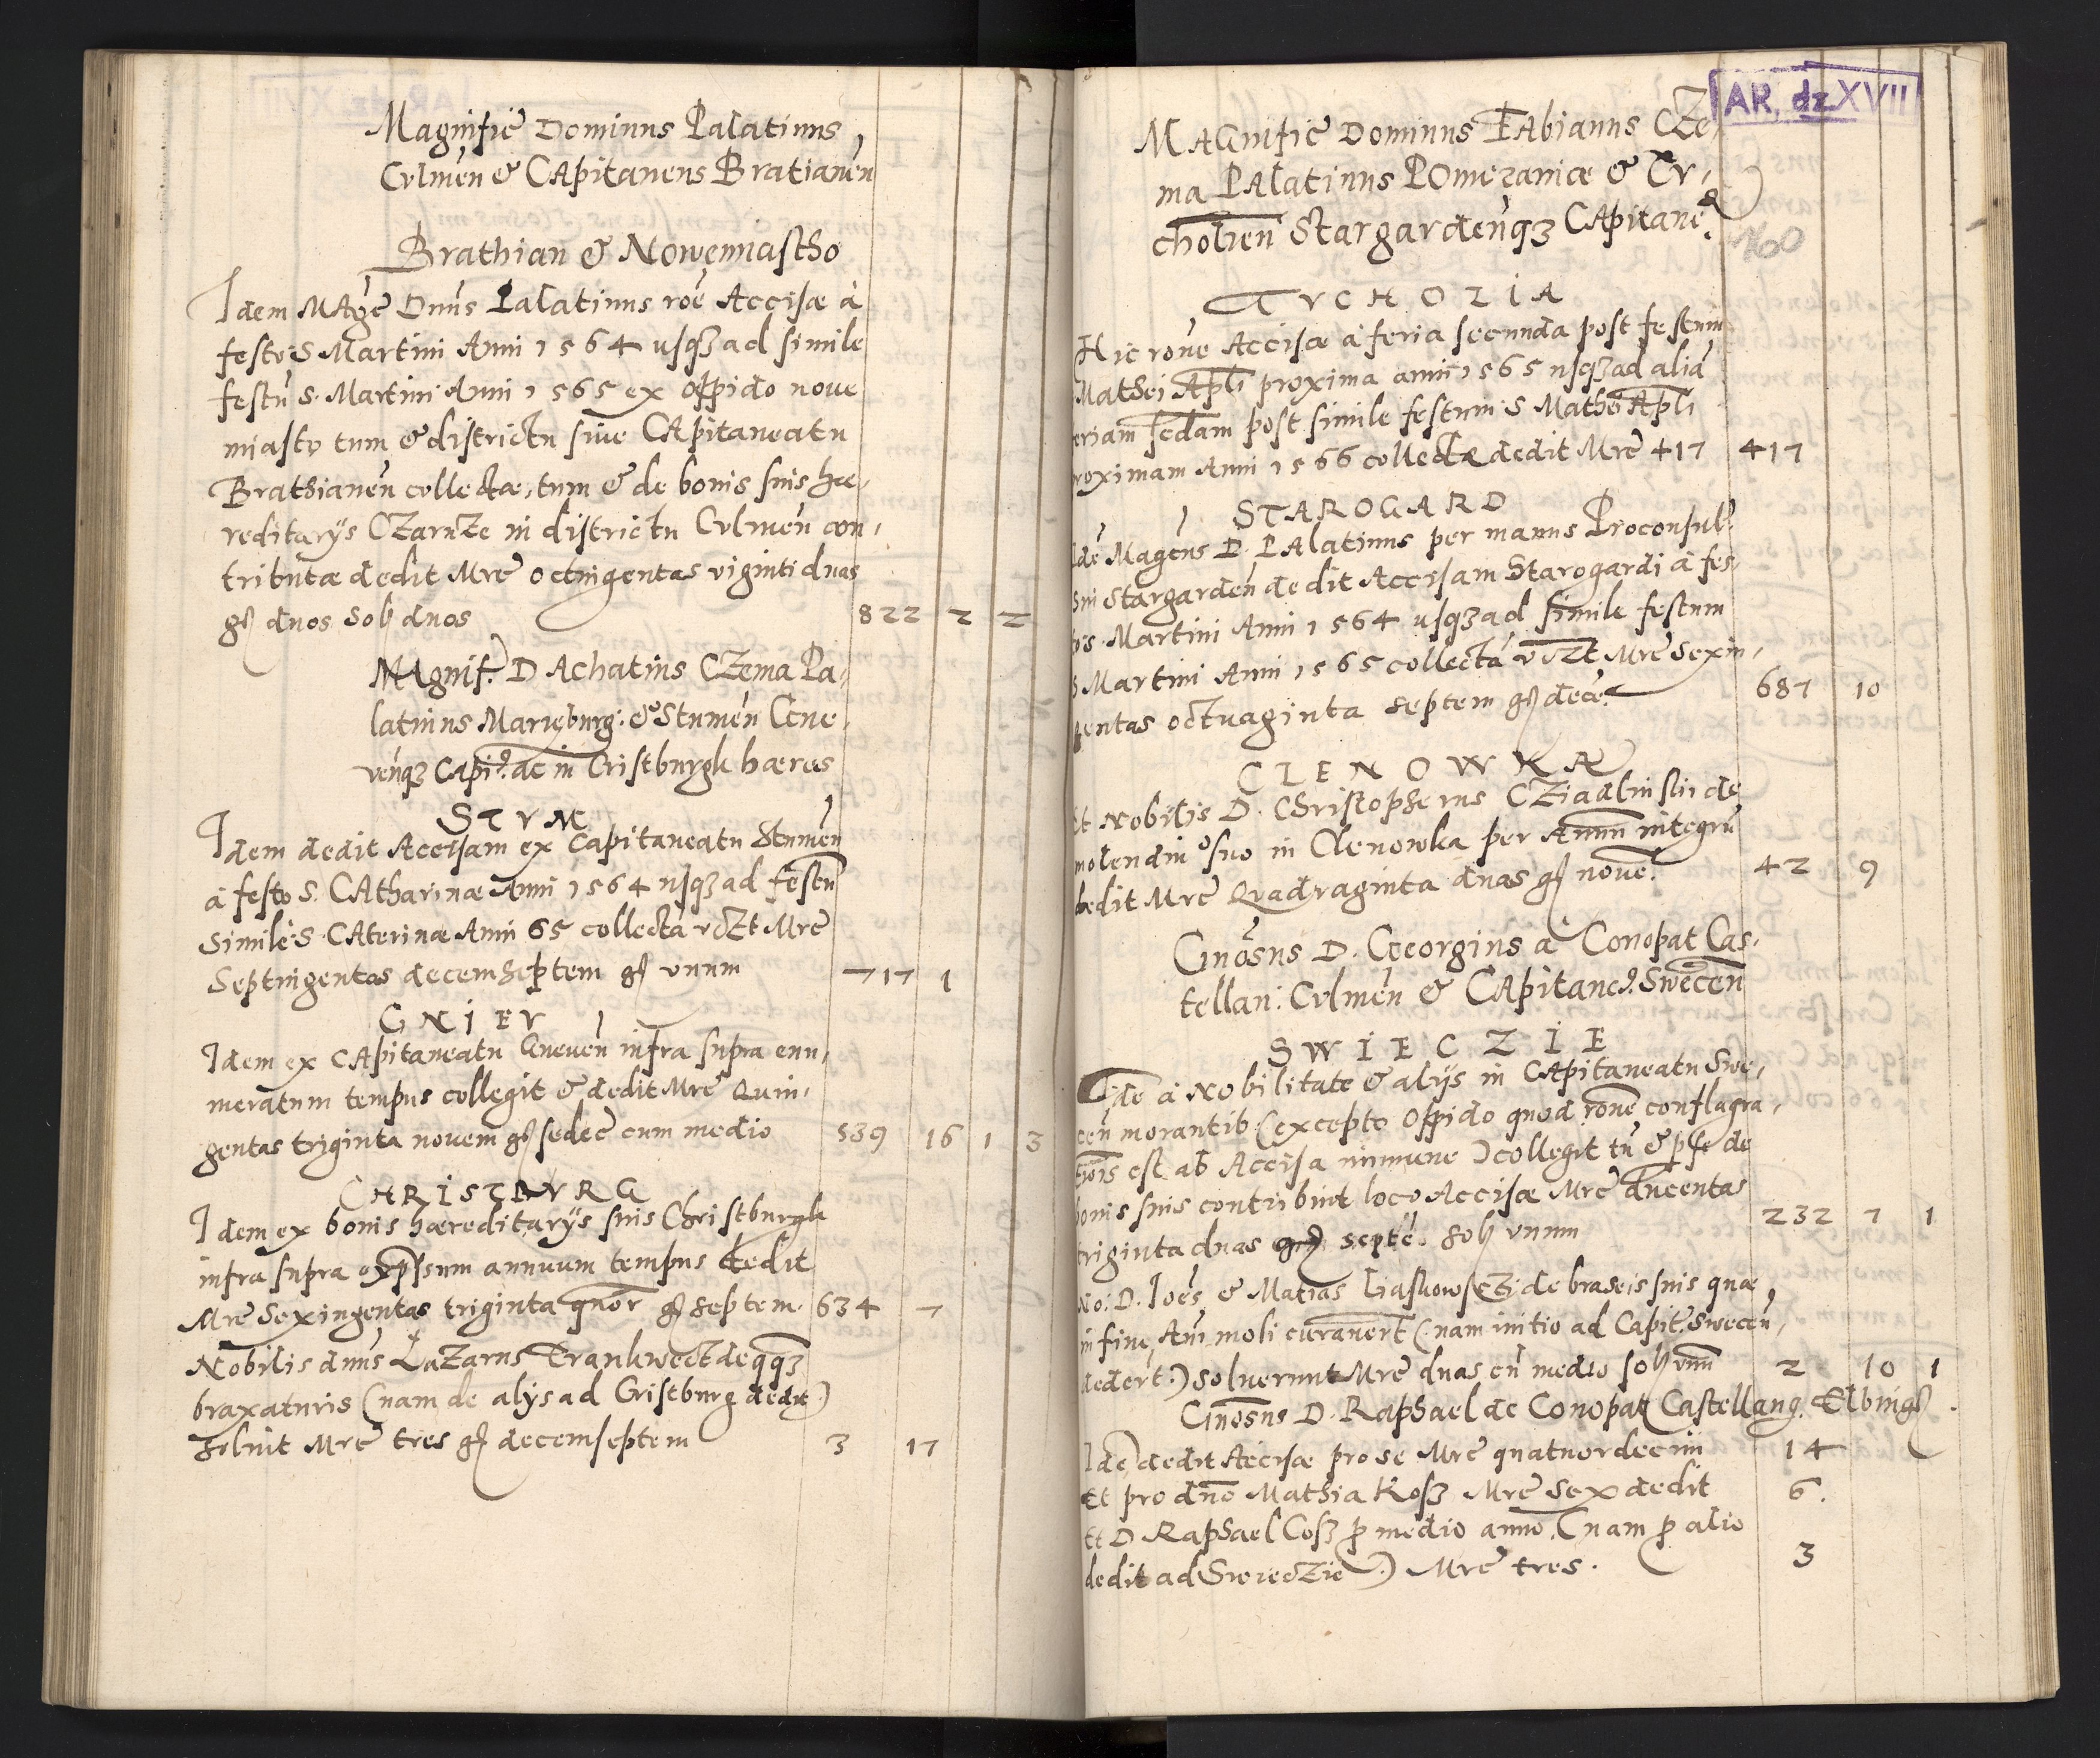 Magnific Dominus Palatinus
Culmen & Capitaneus Bratianen
Brathian & Nowenmastho
Idem Mage Dnus Palatinus roe Accisæ à
festo S Martini Anni 1564 usqz ad simile
festu S. Martini Anni 1565 ex Oppido nove
miasto tum & districtu sive Capitaneatu
Brathianen collectæ, tum & de bonis suis hæ,
reditarijs Czarnze in districtu Culmen con,
tributæ dedit Mrc octingentas viginti duas
gs duos Sob duos 822 2 2
Magnif. D Achatius Czema Pa,
latinus Marieburg: & Stumen Gne,
venqz Capit. ac in Cristburgk hæres
STVM
Idem dedit Accisam ex Capitaneatu Stumen
à festo S. Catharinæ Anni 1564 usqz ad festu
Simile S. Caterinæ Anni 65 collecta vczt Mrc
Septingentas decem septem gs unum 717 1
GNIEV
Idem ex Capitaneatu Gneven infra supra enu,
meratum tempus collegit & dedit Mrc Quin,
gentas triginta novem gs sedec cum medio 539 16 1 3
CHRISTBVRG
Idem ex bonis hæreditarijs suis Christburgk
infra supra expssum annuum tempus dedit
Mrc Sexingentas triginta quor gs septem 634 7
Nobilis dnus Lazarus Trankwect de qqz
braxaturis (nam de alijs ad Cristburg dedit)
Soluit Mrc tres gs decem septem 3 17
AR. dz XVII
Magnific Dominus Fabianus Cze,
ma Palatinus Pomeraniæ & Tu,
cholien Stargardenqz Capitane.
TVCHOLIA
Hic rone Accisæ à feria secunda post festum
Mathei Apli proxima anni 1565 usqz ad alia
eriam scdam post simile festum S Mathei Apli
roximam Anni 1566 collectæ dedit Mrc 417 417
STAROGARD
Ide Magcus D. Palatinus per manus Proconsul.
sui Stargarden dedit Accisam Starogardi à fes,
to S. Martini Anni 1564 usqz ad simile festum
S Martini Anni 1565 collecta vczt Mrc Sexin,
gentas octuaginta septem gs dece. 687 10
CLENOWKA
Et Nobilis D. Christopherus Cziadlinskii de
molendino suo in Clenowka per Annu integru
dedit Mrc Quadraginta duas gs nove. 42 9
Gnosus D. Georgius a Conopat Cas,
tellan: Culmen & Capitane. Swecen
SWIECZIE
Ide à Nobilitate & alijs in Capitaneatu Swe,
cen morantib. (excepto Oppido quod rone conflagra,
tiois est ab Accisa immune) collegit tu & p se de
bonis suis contribuit loco Accisæ Mrc ducentas
triginta duas gs septe. Sob unum 232 7 1
No: D. Ioes & Matias Liaskowsczi de braseis suis quæ
in fine Ani moli curavert (nam initio ad Capit. Swecen,
dedert.) Soluerunt Mrc duas cu medio sob unu 2 10 1
Gnosus D. Raphael de Conopat Castellang. Elbing
Ide dedit Accisæ pro se Mrc quatuordecim 14
Et pro dno Mathia Kosz Mrc Sex dedit 6.
Et D Raphael Cosz p medio anno (nam p alio
dedit ad Swieczie.) Mrc tres. 3